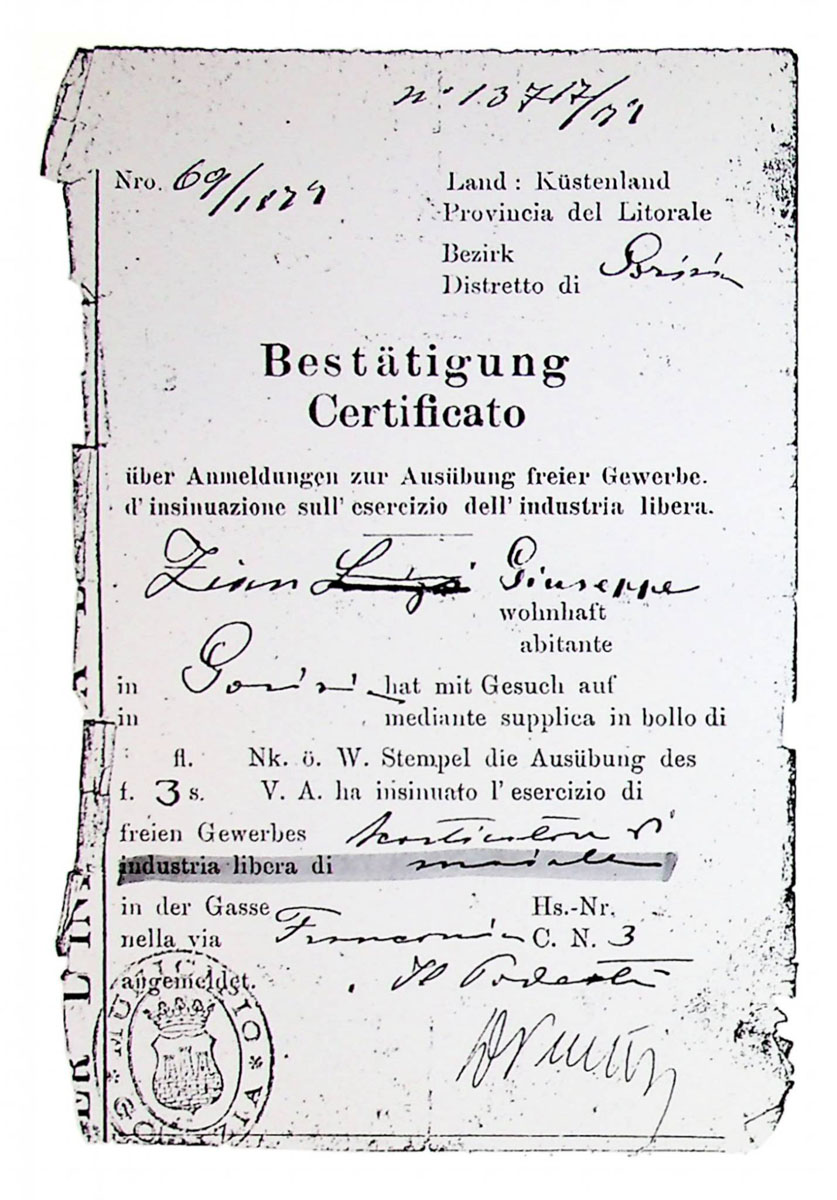 nº 13717/79
Nro. 69/1879
Land: Küstenland
Provincia del Litorale
Bezirk
Distretto di Gorizia
Bestätigung
Certificato
über Anmeldungen zur Ausübung freier Gewerbe.
d'insinuazione sull'esercizio dell'industria libera.
Zian Luigi Giuseppe
wohnhaft
abitante
in Gorizia hat mit Gesuch auf
in mediante supplica in bollo di
fl. Nk. ö. W. Stempel die Ausübung des
f. 3 s. V. A. ha insinuato l'esercizio di
freien Gewerbes
industria libera di maiale
in der Gasse Hs.-Nr.
nella via C. N. 3
angemeldet. Il Podestà
MUNICIPIO